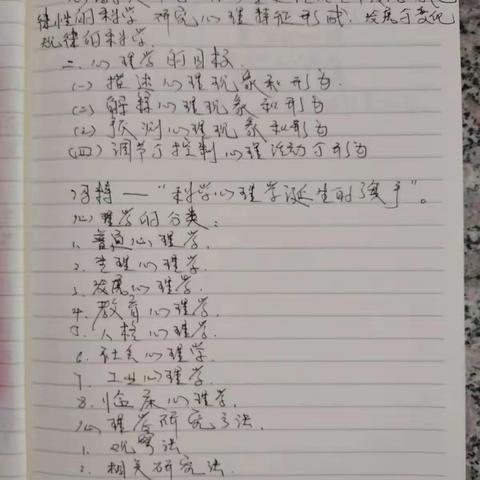 律性的科学 研究心理特征形成、发展与变化
规律的科学.
二、心理学的目标.
(一) 描述心理现象和行为.
(二) 解释心理现象和行为
(三) 预测心理现象和行为
(四) 调节与控制心理活动与行为
冯特 — “科学心理学诞生的。”
心理学的分类:
1. 普通心理学.
2. 生理心理学.
3. 发展心理学.
4. 教育心理学.
5. 人格心理学.
6. 社会心理学.
7. 工业心理学.
8. 临床心理学.
心理学研究方法.
1. 观察法
2. 相关研究法.